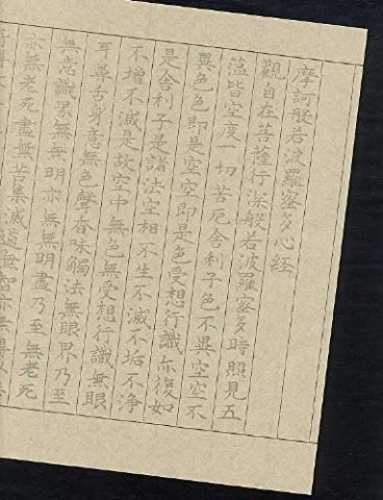 摩訶般若波羅蜜多心経
観自在菩薩行深般若波羅蜜多時照見五
蘊皆空度一切苦厄舎利子色不異空空不
異色色即是空空即是色受想行識亦復如
是舎利子是諸法空相不生不滅不垢不浄
不増不減是故空中無色無受想行識無眼
耳鼻舌身意無色聲香味觸法無眼界乃至
無意識界無無明亦無無明盡乃至無老死
亦無老死盡無苦集滅道無智亦無得以無